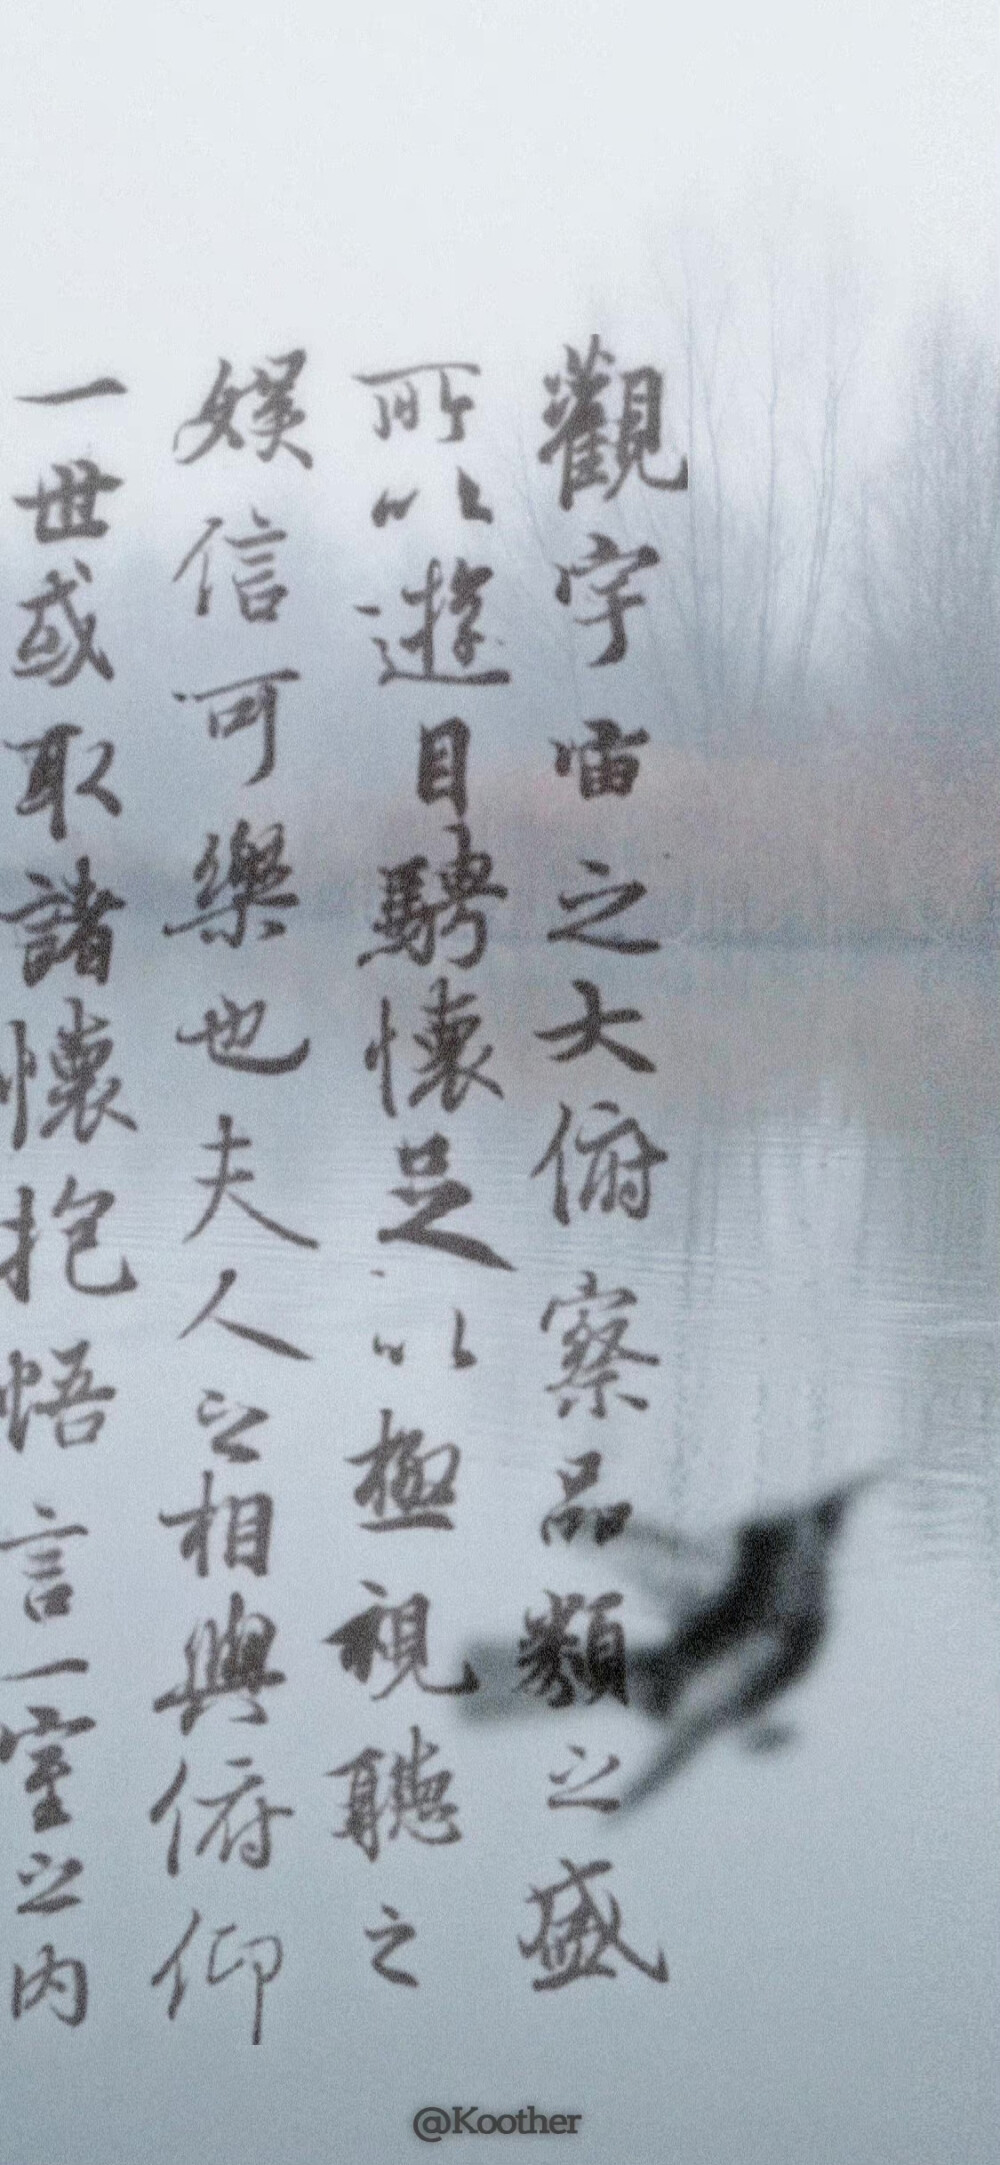 觀宇宙之大俯察品類之盛
所以遊目騁懷足以極視聽之
娱信可樂也夫人之相與俯仰
一世或取諸懷抱悟言一室之內
@Koother